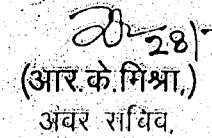 28/-
(आर.के.मिश्रा,)
अवर सचिव,